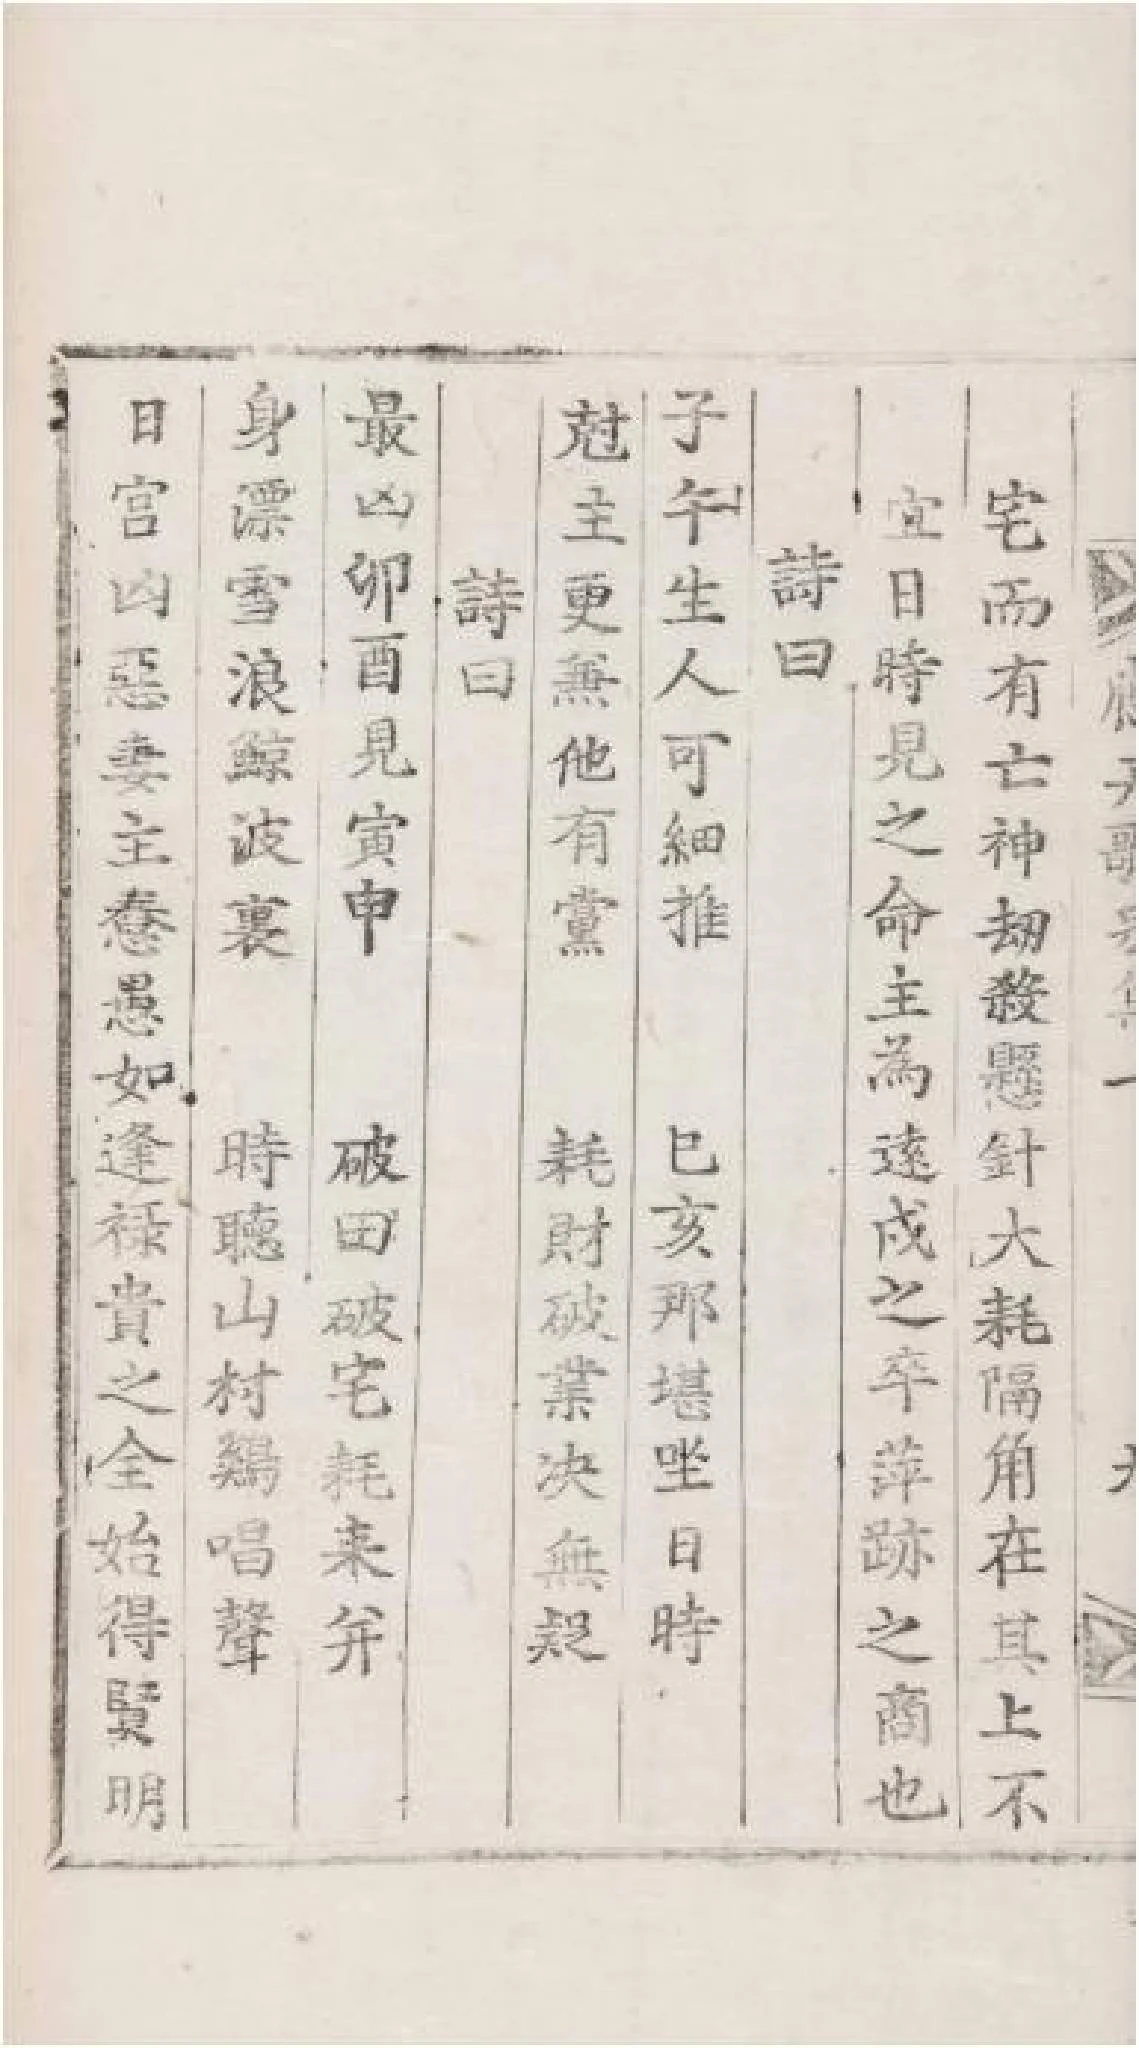 宅而有亡神劫殺懸針大耗隔角在其上不
宜日時見之命主為遠戍之卒萍跡之商也
詩曰
子午生人可細推 巳亥那堪坐日時
尅主更無他有黨 耗財破業决無疑
詩曰
最凶卯酉見寅申 破田破宅耗来并
身漂雪浪鯨波裏 時聽山村鷄唱聲
日宫凶惡妻主惷愚如逢禄貴之全始得賢明